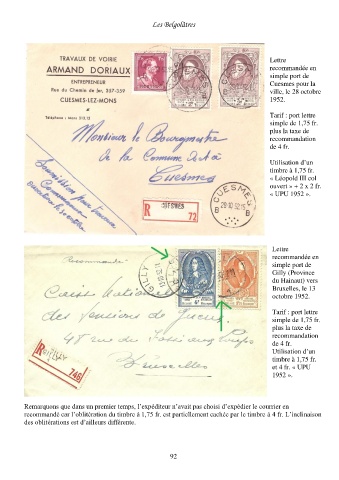 Les Belgolâtres
TRAVAUX DE VOIRIE
ARMAND DORIAUX
ENTREPRENEUR
Rue du Chemin de fer, 257-259
CUESMES-LEZ-MONS
Monsieur le Bourgmestre
de la Commune
Cuesmes
R
CUESMES
72
CUESMES
B B
Lettre
recommandée en
simple port de
Cuesmes pour la
ville, le 28 octobre
1952.
Tarif : port lettre
simple de 1,75 fr.
plus la taxe de
recommandation
de 4 fr.
Utilisation d’un
timbre à 1,75 fr.
« Léopold III col
ouvert » + 2 x 2 fr.
« UPU 1952 ».
Recommandé
GILLY
des Pensions de Guerre
Bruxelles
R
746
Lettre
recommandée en
simple port de
Gilly (Province
du Hainaut) vers
Bruxelles, le 13
octobre 1952.
Tarif : port lettre
simple de 1,75 fr.
plus la taxe de
recommandation
de 4 fr.
Utilisation d’un
timbre à 1,75 fr.
et 4 fr. « UPU
1952 ».
Remarquons que dans un premier temps, l’expéditeur n’avait pas choisi d’expédier le courrier en
recommandé car l’oblitération du timbre à 1,75 fr. est partiellement cachée par le timbre à 4 fr. L’inclinaison
des oblitérations est d’ailleurs différente.
92